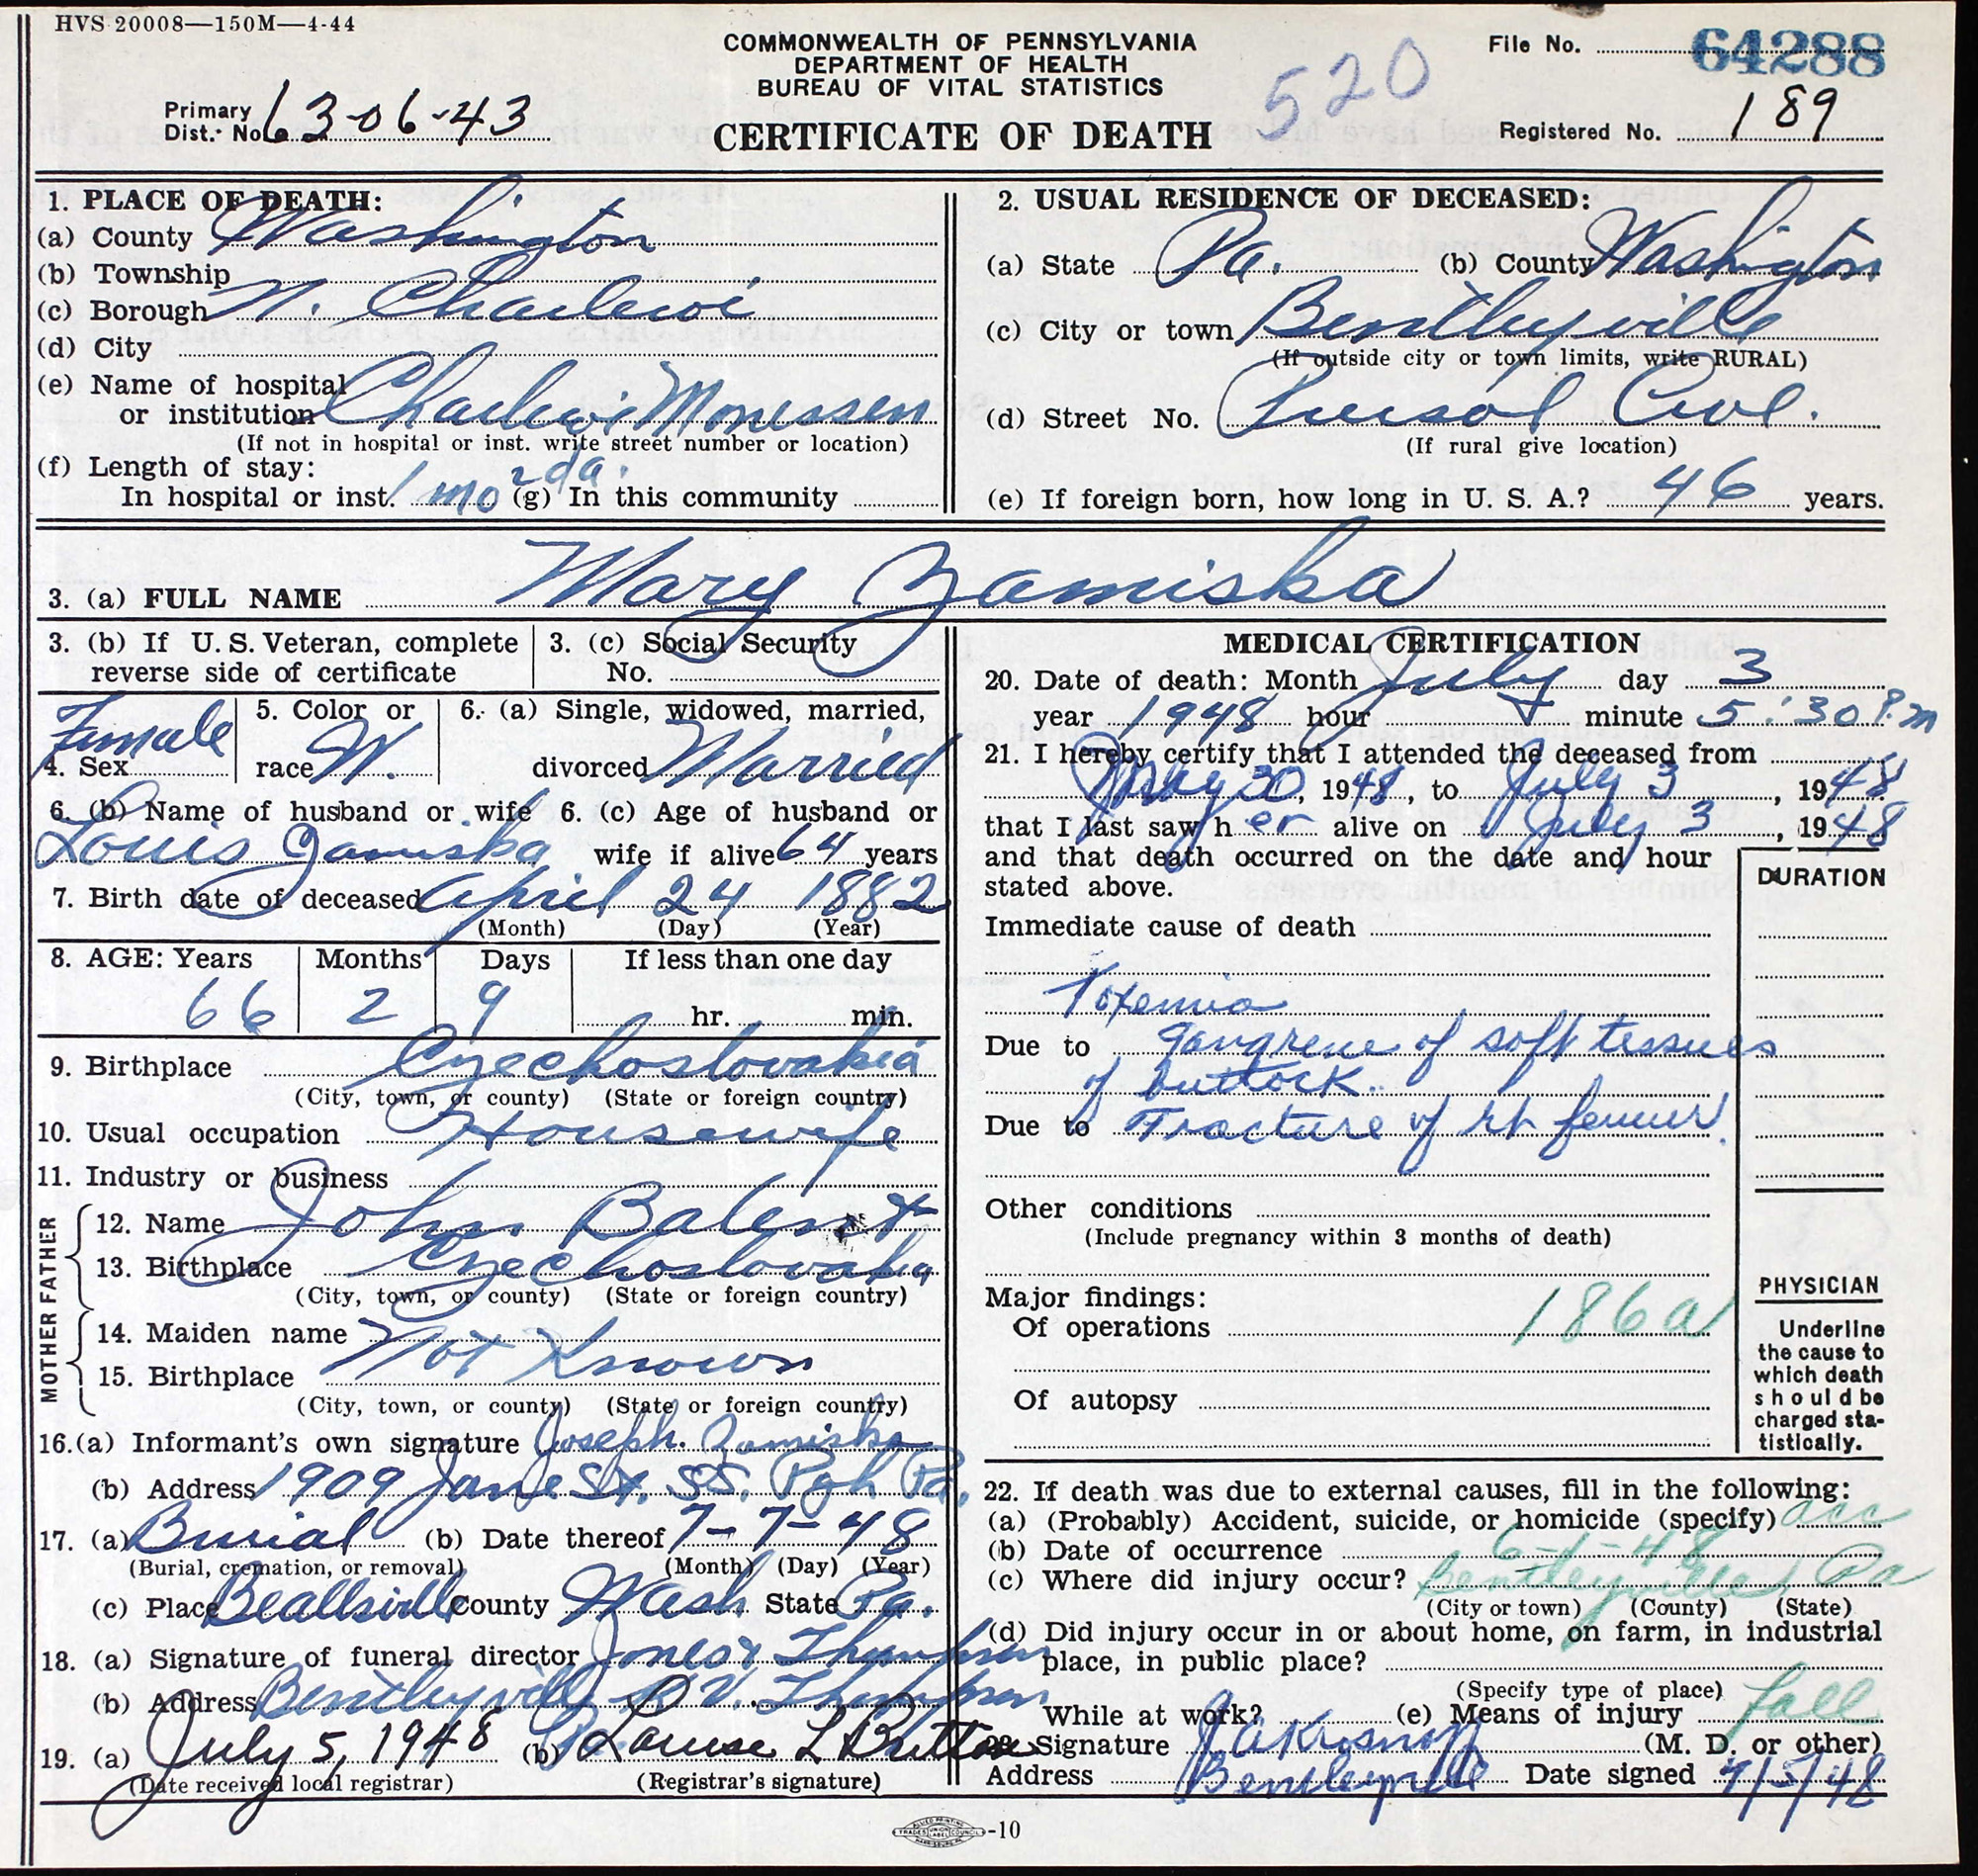 HVS 20008—150M—4-44
COMMONWEALTH OF PENNSYLVANIA
DEPARTMENT OF HEALTH
BUREAU OF VITAL STATISTICS
520
File No. 64288
Primary
Dist. No. 63-06-43
CERTIFICATE OF DEATH
Registered No. 189
1. PLACE OF DEATH:
(a) County Washington
(b) Township
(c) Borough N. Charleroi
(d) City
(e) Name of hospital
or institution Charleroi Monessen
(If not in hospital or inst. write street number or location)
(f) Length of stay:
In hospital or inst. 1 mo 2 da. (g) In this community
2. USUAL RESIDENCE OF DECEASED:
(a) State Pa. (b) County Washington
(c) City or town Bentleyville
(If outside city or town limits, write RURAL)
(d) Street No. Ave.
(If rural give location)
(e) If foreign born, how long in U. S. A.? 46 years.
3. (a) FULL NAME Mary Zamiska
3. (b) If U. S. Veteran, complete
reverse side of certificate
3. (c) Social Security
No.
4. Sex Female
5. Color or
race W.
6. (a) Single, widowed, married,
divorced Married
6. (b) Name of husband or wife
Louis Zamiska
6. (c) Age of husband or
wife if alive 64 years
7. Birth date of deceased April 24 1882
(Month) (Day) (Year)
8. AGE: Years Months Days If less than one day
66 2 9 hr. min.
9. Birthplace Czechoslovakia
(City, town, or county) (State or foreign country)
10. Usual occupation Housewife
11. Industry or business
FATHER
12. Name John Balent
13. Birthplace Czechoslovakia
(City, town, or county) (State or foreign country)
MOTHER
14. Maiden name Not Known
15. Birthplace
(City, town, or county) (State or foreign country)
16.(a) Informant's own signature Joseph. Zamiska
(b) Address 1909 Jane St. SS. Pgh Pa.
17. (a) Burial (b) Date thereof 7-7-48
(Burial, cremation, or removal) (Month) (Day) (Year)
(c) Place Beallsville County Wash State Pa.
18. (a) Signature of funeral director Jones & Thompson
(b) Address Bentleyville Thompson
19. (a) July 5, 1948 (b) Louise L Britton
(Date received local registrar) (Registrar's signature)
MEDICAL CERTIFICATION
20. Date of death: Month July day 3
year 1948 hour minute 5:30 P.m
21. I hereby certify that I attended the deceased from
May 30, 1948, to July 3, 1948
that I last saw her alive on July 3, 1948
and that death occurred on the date and hour
stated above.
DURATION
Immediate cause of death
Toxemia
Due to gangrene of soft tissues
of buttock.
Due to Fracture of rt femur
Other conditions
(Include pregnancy within 3 months of death)
Major findings:
Of operations 186a
Of autopsy
PHYSICIAN
Underline
the cause to
which death
should be
charged sta-
tistically.
22. If death was due to external causes, fill in the following:
(a) (Probably) Accident, suicide, or homicide (specify) acc
(b) Date of occurrence 6-1-48
(c) Where did injury occur? Bentleyville Pa
(City or town) (County) (State)
(d) Did injury occur in or about home, on farm, in industrial
place, in public place?
(Specify type of place)
While at work? (e) Means of injury fall
23. Signature (M. D. or other)
Address Bentleyville Date signed 7/5/48
-10